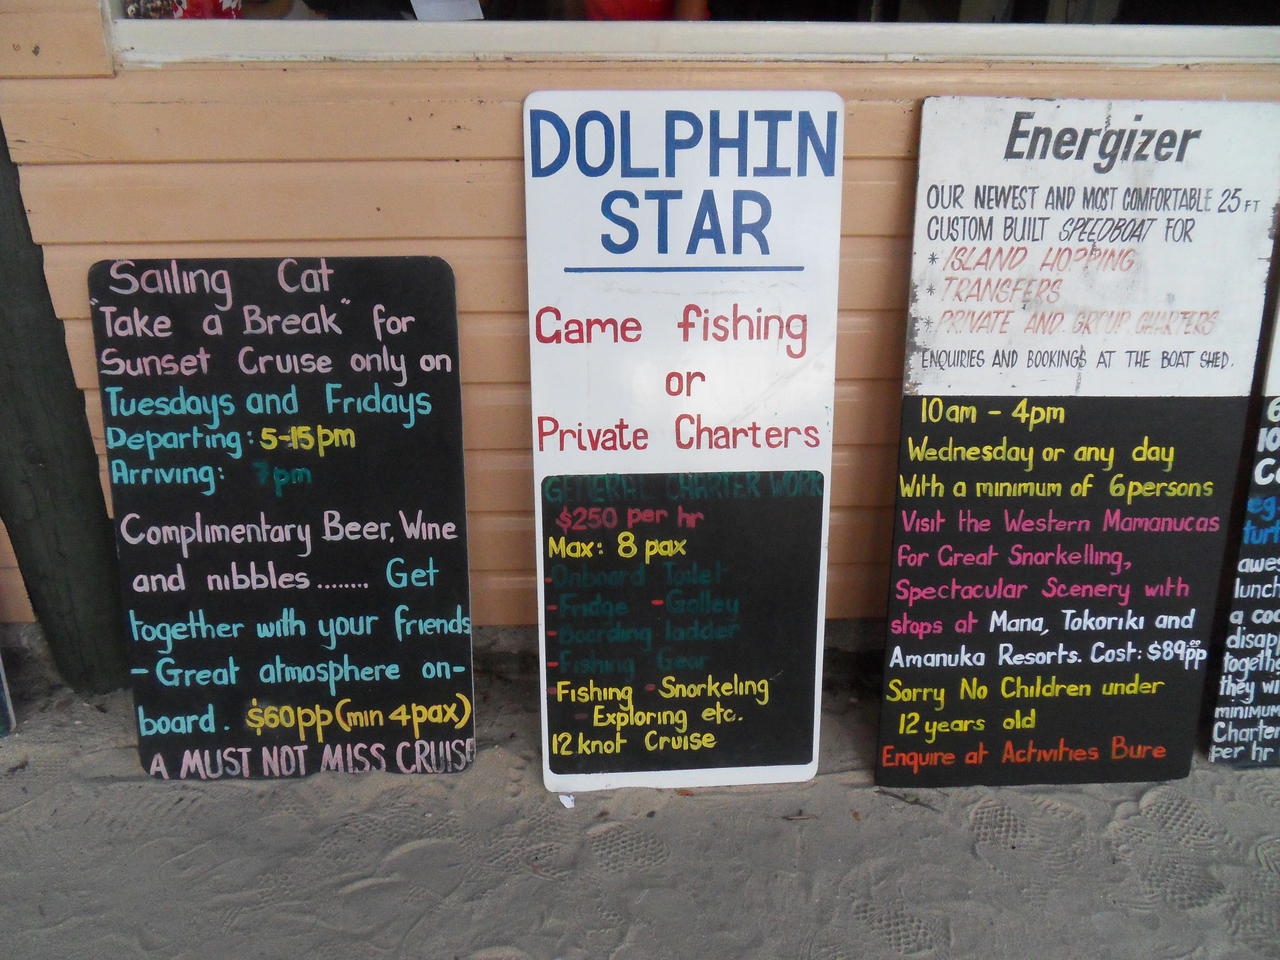 Sailing Cat
"Take a Break" for
Sunset Cruise only on
Tuesdays and Fridays
Departing: 5-15pm
Arriving: 7pm
Complimentary Beer, Wine
and nibbles........ Get
together with your friends
- Great atmosphere on-
board. $60pp (min 4pax)
A MUST NOT MISS CRUISE
DOLPHIN
STAR
Game fishing
or
Private Charters
GENERAL CHARTER WORK
$250 per hr
Max: 8 pax
- Onboard Toilet
- Fridge - Galley
- Boarding ladder
- Fishing Gear
Fishing - Snorkeling
- Exploring etc.
12 knot Cruise
Energizer
OUR NEWEST AND MOST COMFORTABLE 25 FT
CUSTOM BUILT SPEEDBOAT FOR
* ISLAND HOPPING
* TRANSFERS
* PRIVATE AND GROUP CHARTERS
ENQUIRIES AND BOOKINGS AT THE BOAT SHED.
10am - 4pm
Wednesday or any day
With a minimum of 6 persons
Visit the Western Mamanucas
for Great Snorkelling,
Spectacular Scenery with
stops at Mana, Tokoriki and
Amanuka Resorts. Cost: $89.00pp
Sorry No Children under
12 years old
Enquire at Activities Bure
awes
lunch
a coo
disap
togethe
they wi
minimum
Charter
per hr